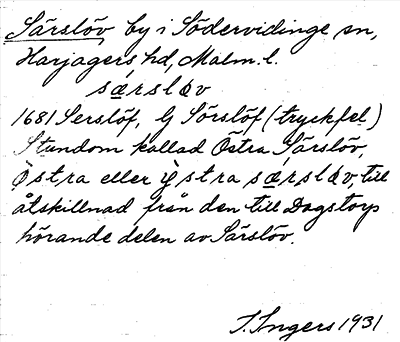 Särslöv by i Södervidinge sn,
Harjagers hd, Malm. l.
særsløv
1681 Serslöf, G Sörslöf (tryckfel)
Stundom kallad Östra Särslöv,
østra eller ÿstra særsløv, till
åtskillnad från den till Dagstorp
hörande delen av Särslöv.
I. Ingers 1931